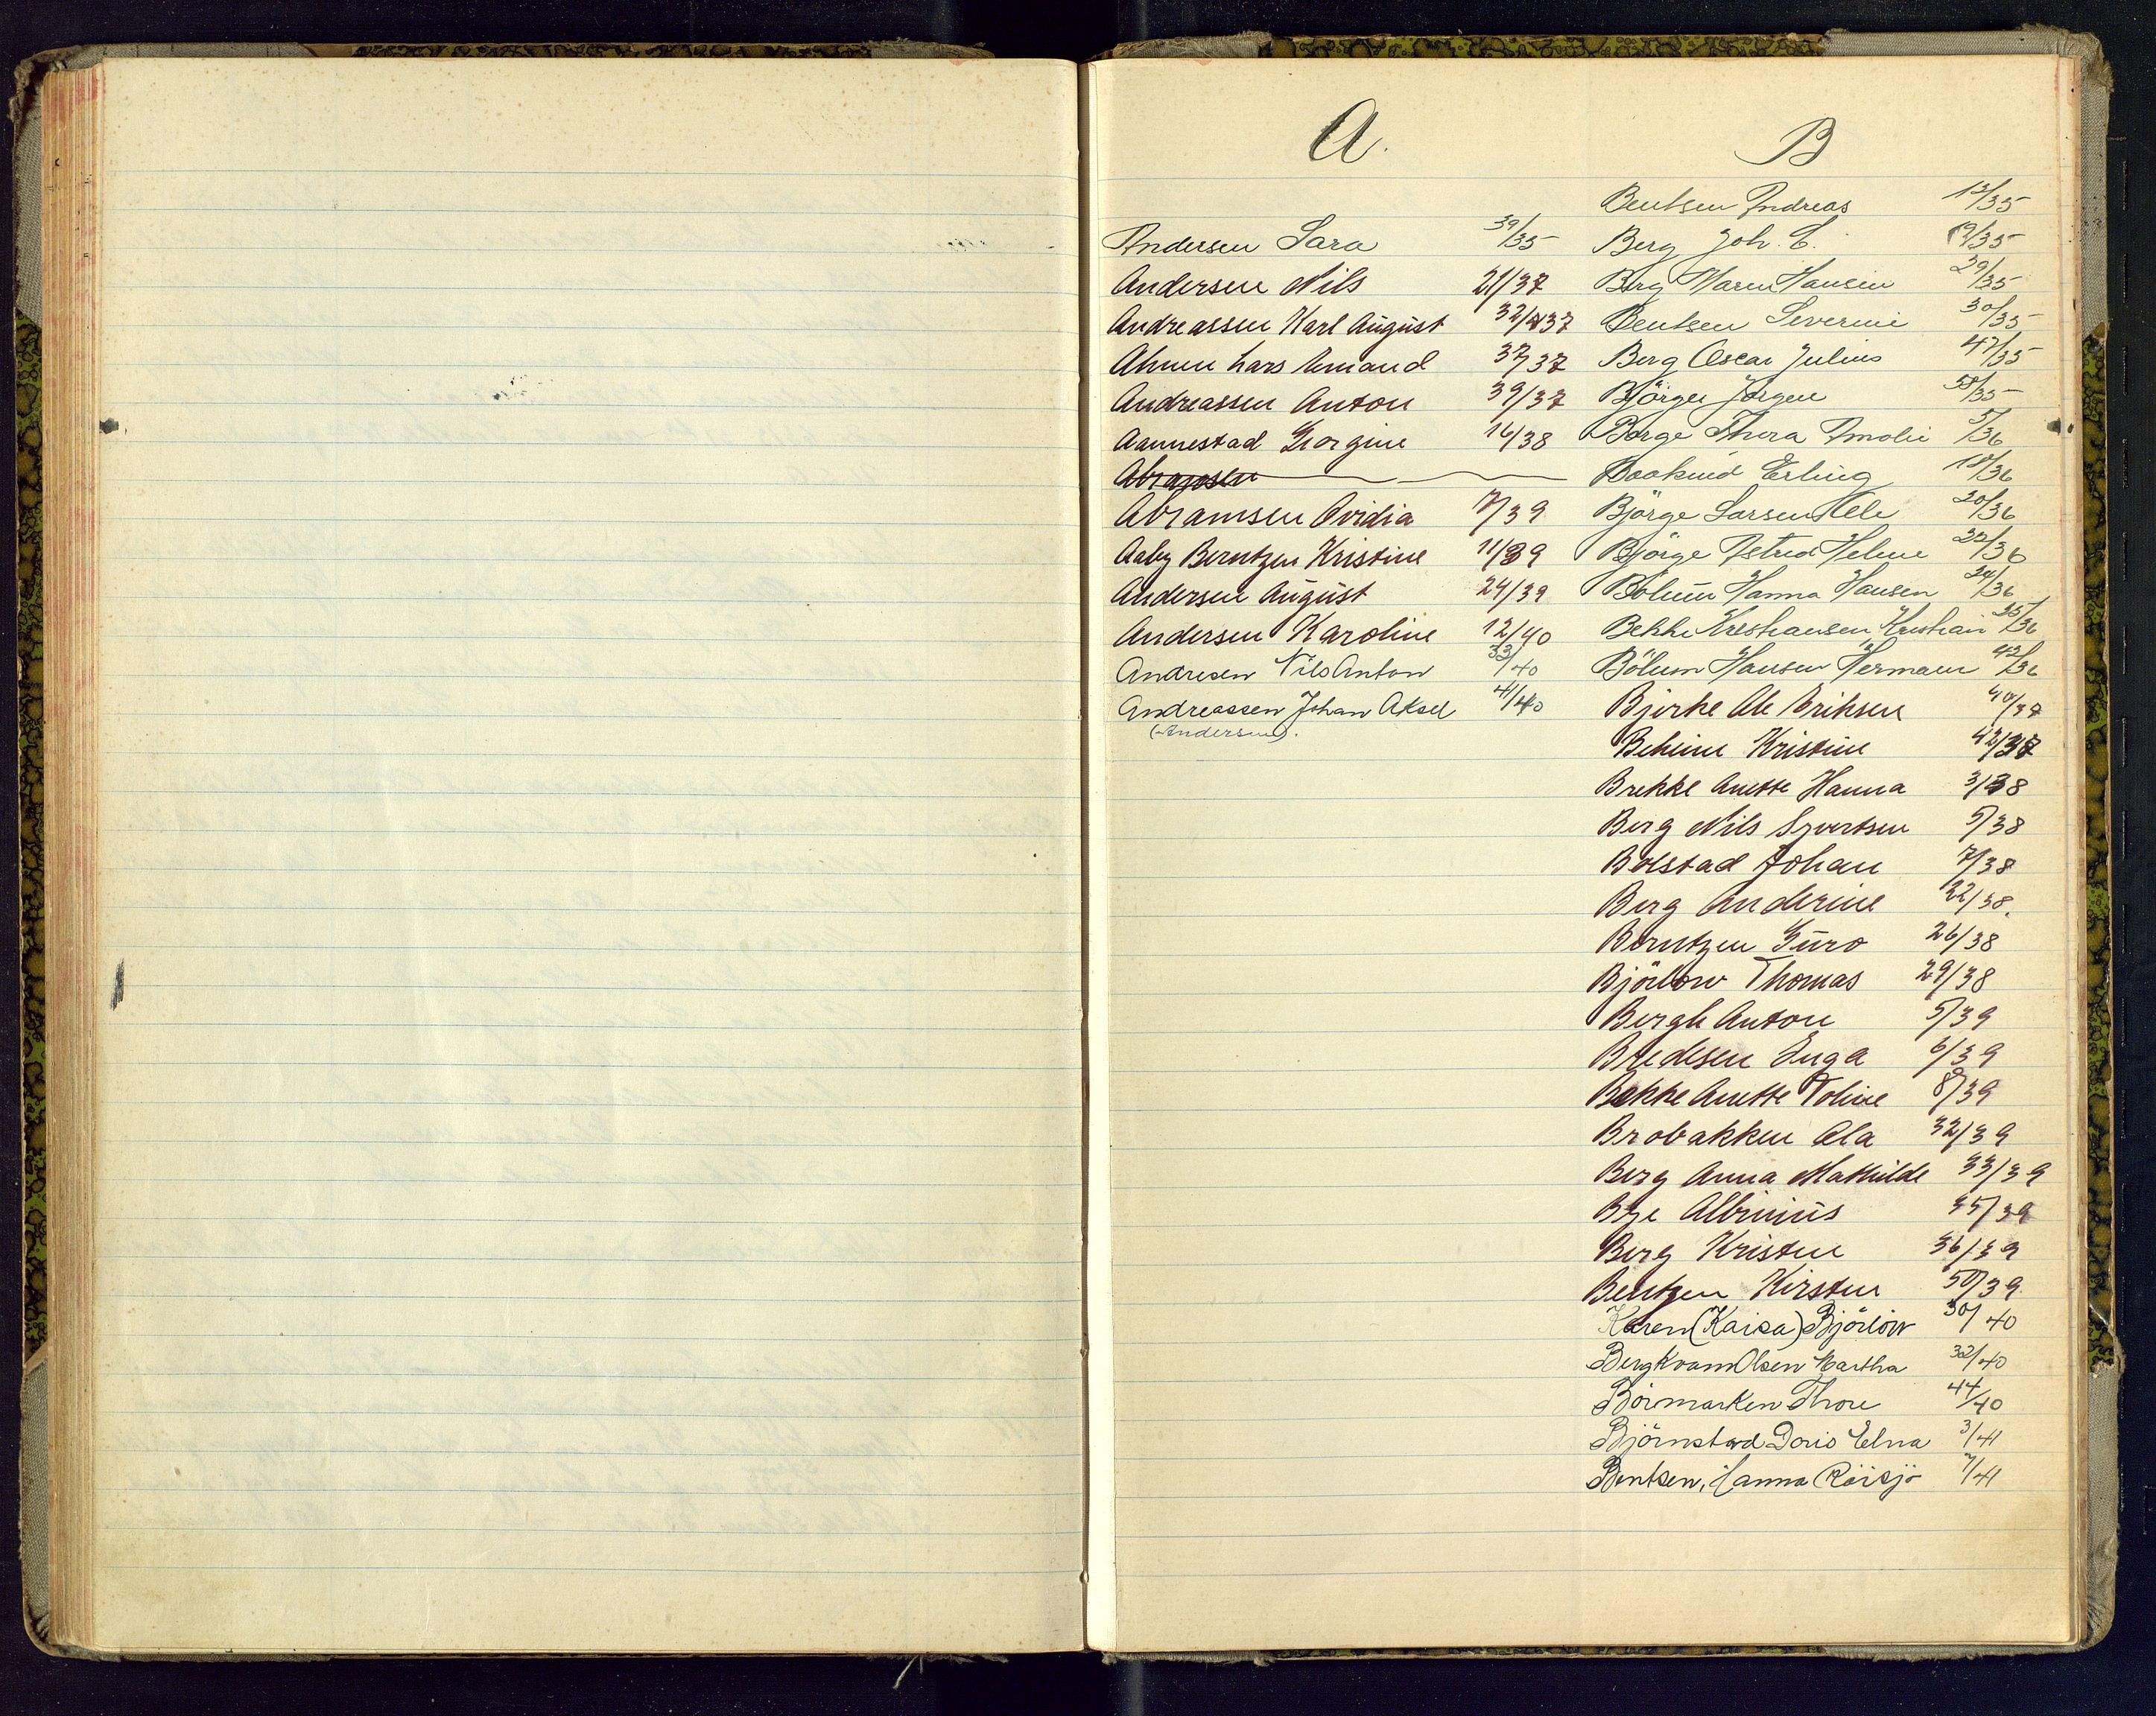 A.
Andersen Sara 39/35
Andersen Nils 21/37
Andreassen Karl August 32/37
Lars Amand 37/37
Andreassen Anton 39/37
Aannestad Georgine 16/38
Abramsen
Abramsen Ovidia 7/39
Aaby Berntzen Kristine 11/39
Andersen August 24/39
Andersen Karoline 12/40
Andresen Nils Anton 33/40
Andreassen Johan Aksel 41/40
(Andersen).
B
Bentsen Andreas 13/35
Berg Joh. C. 19/35
Berg Maren Hansen 29/35
Bentsen Severine 30/35
Berg Oscar Julius 47/35
Björge Jörgen 58/35
Borge Thora Amolie 5/36
Erling 18/36
Björge Larsen Ole 20/36
Björge Astrid Helene 22/36
Bölum Hanna Hansen 24/36
Bekke Kristiansen Kristian 35/36
Bölum Hansen Herman 42/36
Bjerke Ole Eriksen 40/37
Beheim Kristine 42/37
Brekke Anette Hanna 3/38
Berg Nils Syvertsen 5/38
Bolstad Johan 7/38
Berg Anderine 22/38.
Berntzen Guro 26/38
Björlow Thomas 29/38
Bergh Anton 5/39
Bredesen Inga 6/39
Bekke Anette Toline 8/39
Brobakken Ola 32/39
Berg Anna Mathilde 33/39
Bye Albinius 35/39
Berg Kristen 36/39
Bentzen Kirsten 50/39
Karen (Kaisa) Björlow 30/40
Bergkvam Olsen Martha 32/40
Börmarken Thore 44/40
Björnstad Doris Elna 3/41
Bentsen, Hanna Röisjö 7/41